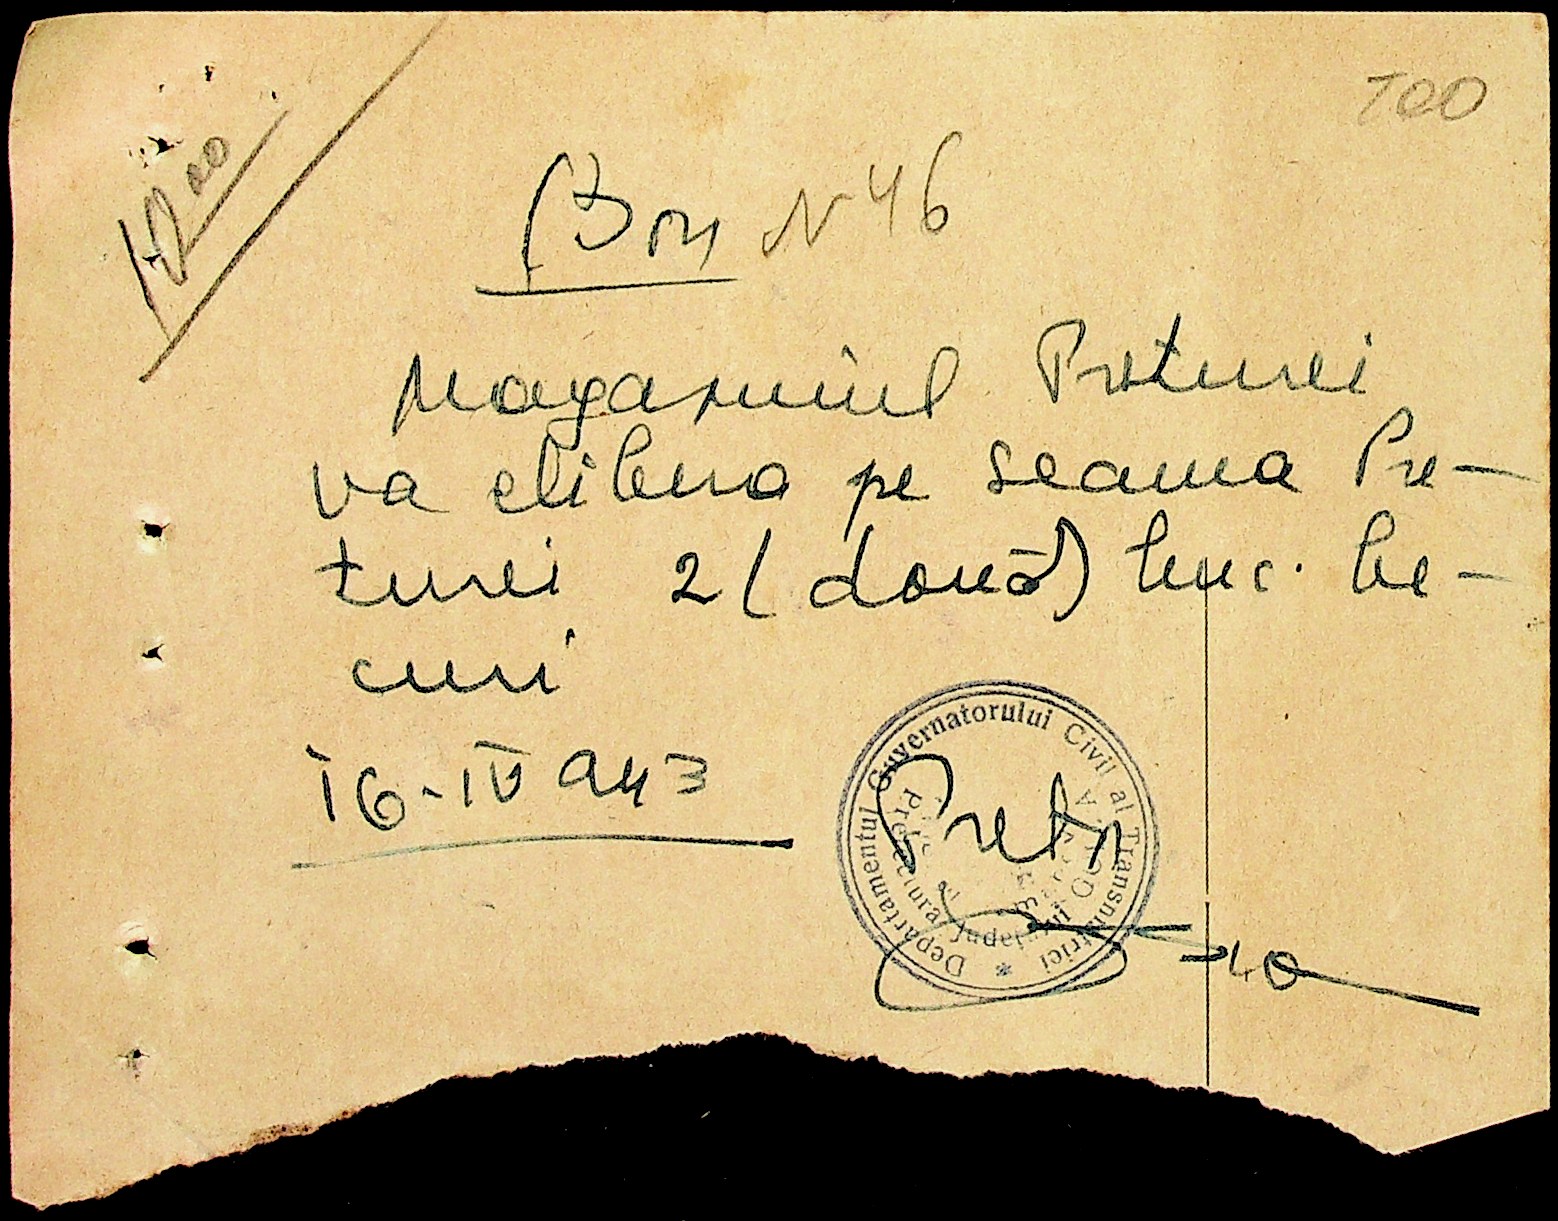 100
12.00
Bon N 46
Magazinul Preturei
va elibera pe seama Pre-
turei 2 (două) buc. be-
curi
16-IV 943
Departamentul Guvernatorului Civil al Transnistriei *
Prefectura Județului
Pretor